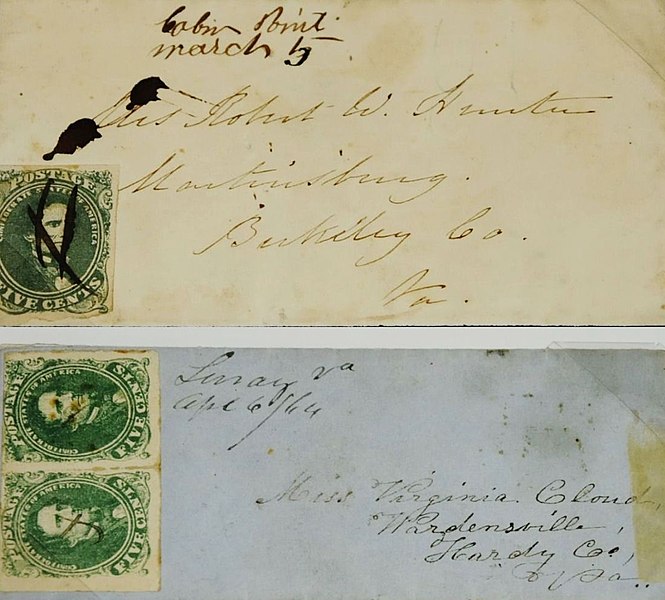 Cabin Point.
March 5
Mrs Robert W. Hunter
Martinsburg.
Berkeley Co.
Va.
POSTAGE
CONFEDERATE STATES OF AMERICA
FIVE CENTS
Luray Va
Apl 6/64
Miss Virginia Cloud,
Wardensville,
Hardy Co,
Va.
POSTAGE
CONFEDERATE STATES OF AMERICA
FIVE CENTS
POSTAGE
CONFEDERATE STATES OF AMERICA
FIVE CENTS